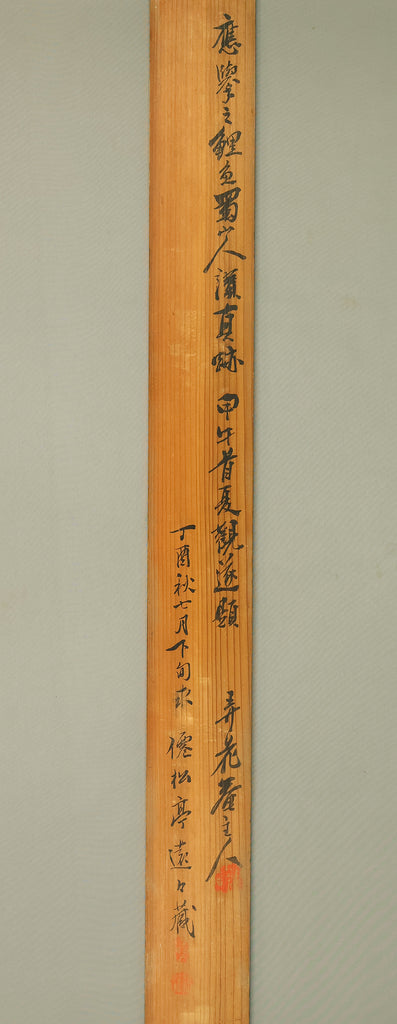 應擧之鯉魚蜀山人讃真跡 甲午首夏觀題 弄花菴主人
丁酉秋七月下旬求 僊松亭遠々藏